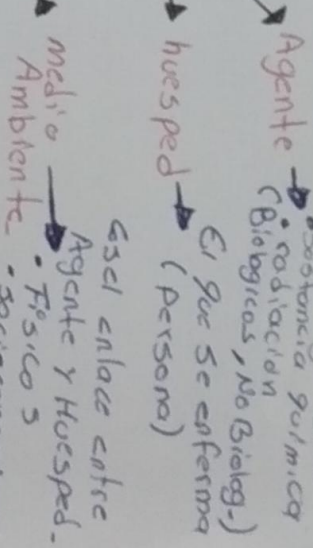 Agente
• Sostancia química
• radiación
(Biologicas, No Biolog-)
huesped
El que se enferma
(persona)
medio
Ambiente
Es el enlace entre
Agente y Huesped-
• Fisicos